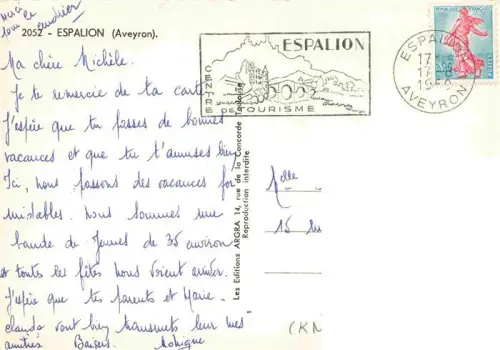 2052 - ESPALION (Aveyron).
Ma chère Michèle.
Je te remercie de ta carte
J'espère que tu passes de bonnes
vacances et que tu t'amuses bien
Ici, nous passons des vacances for
midables. Nous sommes une
bande de jeunes de 35 environ
et toutes les fêtes nous voient arriver.
J'espère que tes parents et Marie
claude vont bien transmets leur mes
amitiés Baisers
ESPALION
CENTRE DE TOURISME
ESPALION
17
AVEYRON
Les Editions ARGRA 14, rue de la Concorde Toulouse
Reproduction interdite
Melle
15